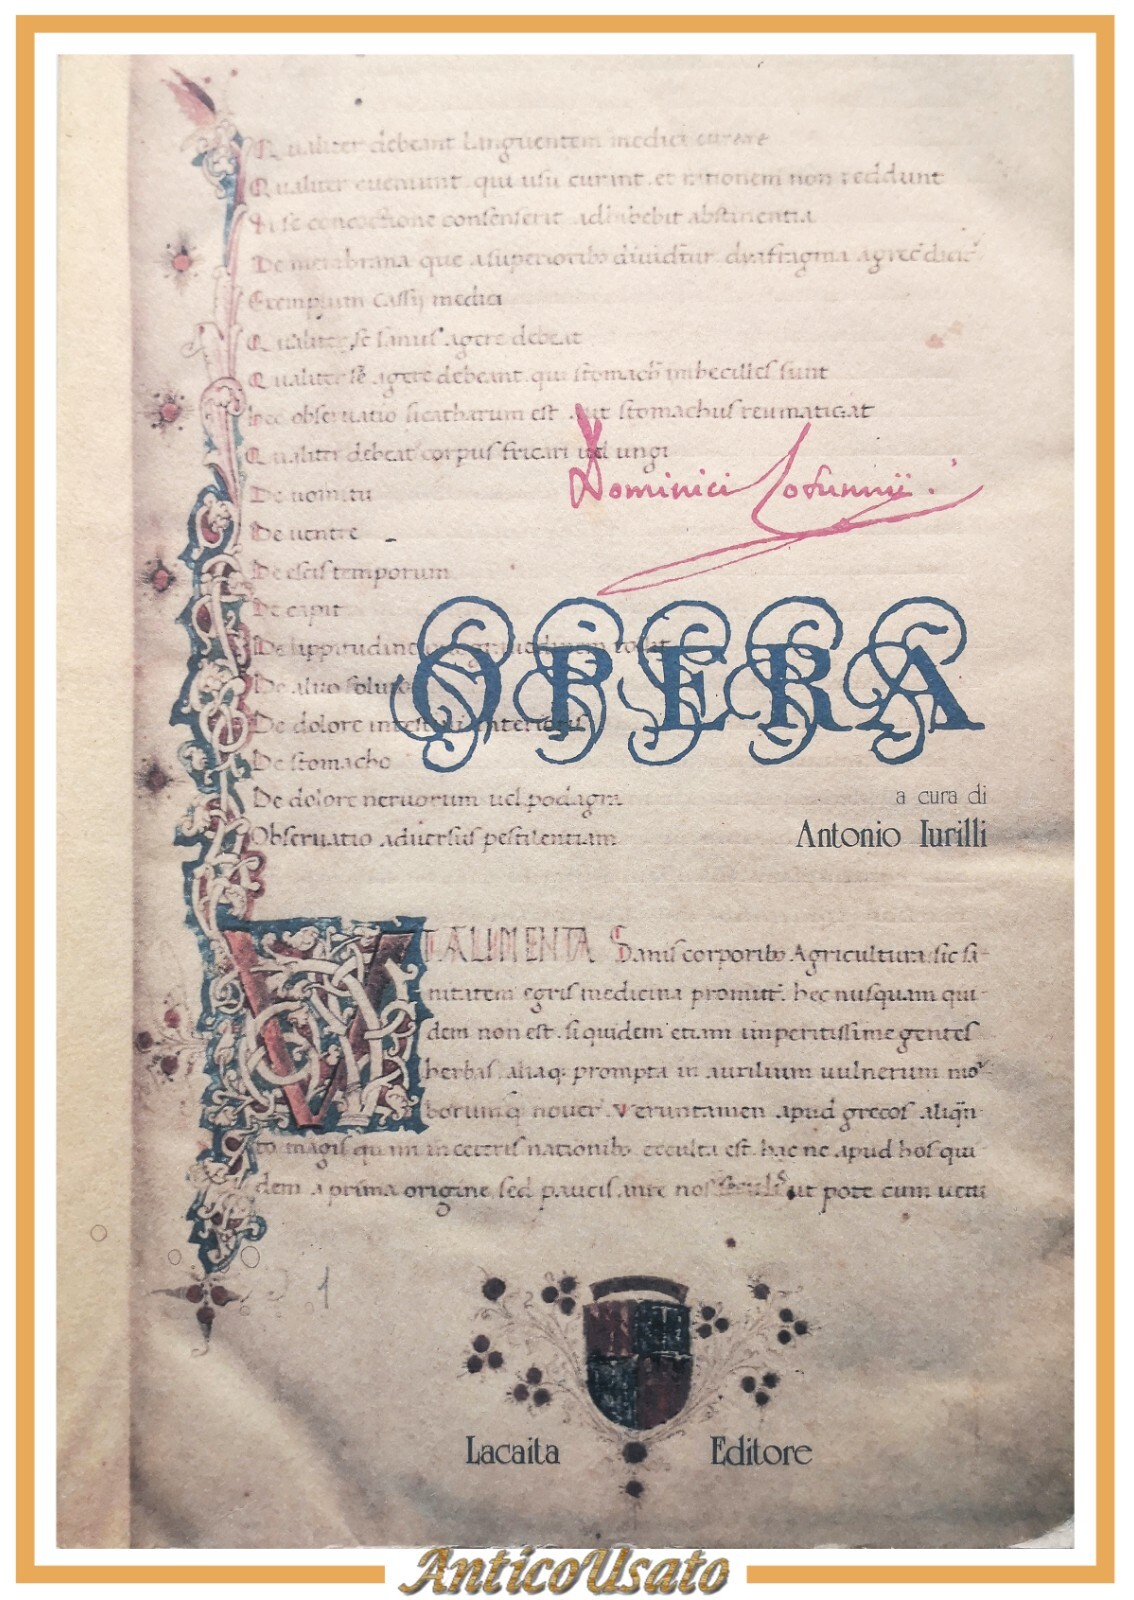 Qualiter debeant languentem medici curare
Qualiter eveniunt qui usu curint et rationem non reddunt
Si se concoctione consenserit adhibebit abstinentia
De membrana que a superiorib dividtur dyafragma a grec dicit
Exemplum Cassij medici
Qualiter se sanus agere debeat
Qualiter se agere debeant qui stomach imbecilles sunt
hec observatio sicatharum est aut stomachus reumatizat
Qualiter debeat corpus fricari uel ungi
Dominici Cotunnii
De uomitu
De uentre
De escis temporum
De capit
De lippitudine
OPERA
De aluo soluto
De dolore intestini interioris
De stomacho
De dolore neruorum uel podagra
a cura di
Antonio Iurilli
Obseruatio aduersus pestilentiam
VT ALIMENTA Sanis corporib Agricultura sic sa-
nitatem egris medicina promitt. hec nusquam qui-
dem non est. siquidem etiam imperitissime gentes
herbas aliaq prompta in auxilium uulnerum mo
borumq nouer. Veruntamen apud grecos aliqn-
to magis quam in ceteris nationib exculta est. hac ne apud hos qui-
dem a prima origine sed paucis ante nos seculis ut pote cum uetu
1
Lacaita Editore
AnticoUsato